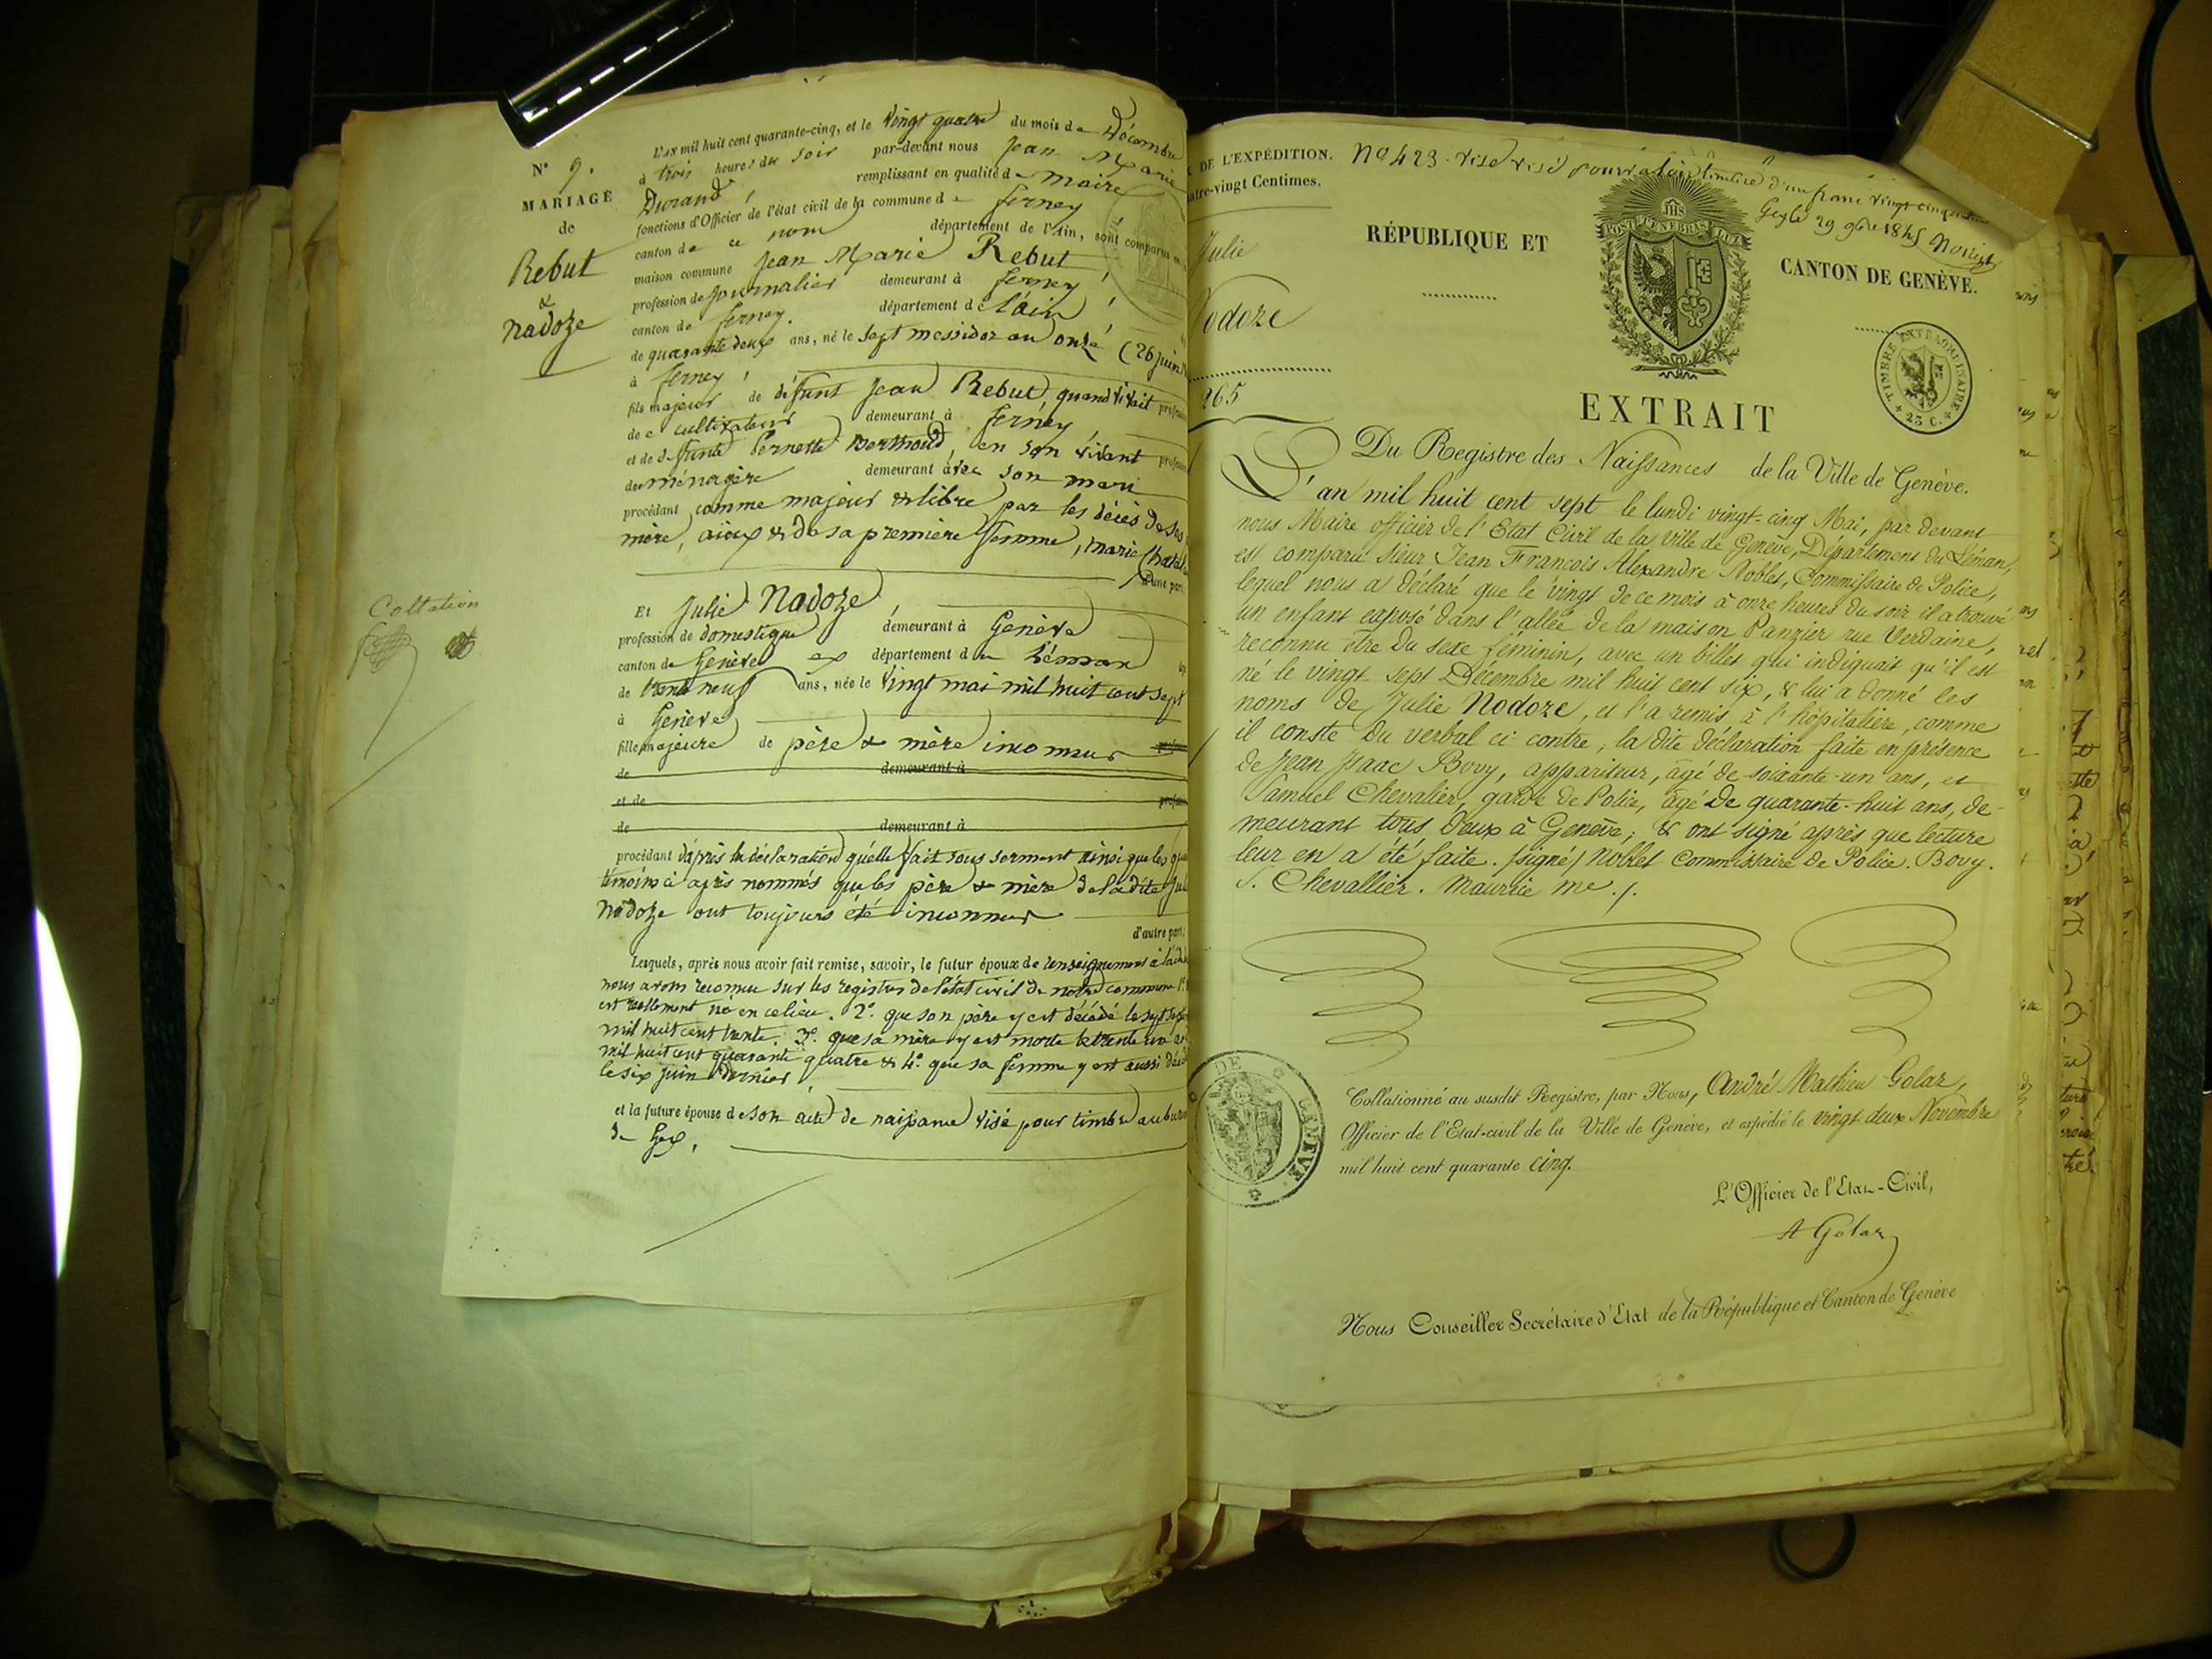 N° 9.
MARIAGE
de
Rebut
&
Nadoze
L'an mil huit cent quarante-cinq, et le vingt quatre du mois de Décembre
à trois heures du soir par-devant nous Jean Marie
Durand, remplissant en qualité de maire
fonctions d'Officier de l'état civil de la commune de ferney
canton de ce nom département de l'Ain, sont comparus en
maison commune Jean Marie Rebut
profession de journalier demeurant à ferney
canton de ferney. département de l'ain
de quarante deux ans, né le sept messidor an onze (26 juin
à ferney
fils majeur de défunt Jean Rebut, quand vivait
de cultivateur demeurant à ferney
et de défunte Pernette Berthoud, en son vivant
de ménagère demeurant avec son mari
procédant comme majeur & libre par les décès de ses
mère, aieux & de sa première femme, marie
d'une part,
Et Julie Nadoze
profession de domestique demeurant à Genève
canton de Genève ex département du Léman
de trente neuf ans, née le vingt mai mil huit cent sept
à Genève
fille majeure de père & mère inconnus
de demeurant à
et de
de demeurant à
procédant d'après la déclaration qu'elle fait sous serment ainsi que les
témoins ci après nommés que les père & mère de la dite
Nadoze ont toujours été inconnus
d'autre part;
Lesquels, après nous avoir fait remise, savoir, le futur époux de
nous avons reconnu sur les registres de l'état civil de notre commune
est réellement né en ce lieu. 2° que son père y est décédé le sept
mil huit cent trente. 3° que sa mère y est morte le trente un
mil huit cent quarante quatre & 4° que sa femme y est aussi
le six juin dernier
et la future épouse de son acte de naissance visé pour timbre au
de Gex.
Collation
DE L'EXPÉDITION.
vingt Centimes.
Julie
Nodoze
265
N° 423. visé pour
d'un franc vingt cinq
Gex le 29 9bre 1845
RÉPUBLIQUE ET
CANTON DE GENÈVE.
JHS
POST TENEBRAS LUX
TIMBRE EXTRAORDINAIRE
25 C.
EXTRAIT
Du Registre des Naissances de la Ville de Genève.
L'an mil huit cent sept le lundi vingt-cinq Mai, par devant
nous Maire officier de l'Etat Civil de la ville de Genève, Département du Léman,
est comparu sieur Jean François Alexandre Noblet, Commissaire de Police,
lequel nous a déclaré que le vingt de ce mois à onze heures du soir il a trouvé
un enfant exposé dans l'allée de la maison Panzier rue Verdaine,
reconnu être du sexe féminin, avec un billet qui indiquait qu'il est
né le vingt sept Décembre mil huit cent six, & lui a donné les
noms de Julie Nodoze, et l'a remis à l'hôpitalière, comme
il conste du verbal ci contre, la dite déclaration faite en présence
de Jean Isaac Bovy, appariteur, âgé de soixante-un ans, et
Samuel Chevalier, garde de Police, âgé de quarante-huit ans, de-
meurant tous deux à Genève; & ont signé après que lecture
leur en a été faite. /signé/ Noblet Commissaire de Police. Bovy.
S. Chevallier. Maurice me./.
DE GENÈVE
Collationné au susdit Registre, par Nous, André Mathieu Golaz,
Officier de l'Etat-civil de la Ville de Genève, et expédié le vingt deux Novembre
mil huit cent quarante cinq.
L'Officier de l'Etat-Civil,
A Golaz
Nous Conseiller Secrétaire d'Etat de la République et Canton de Genève